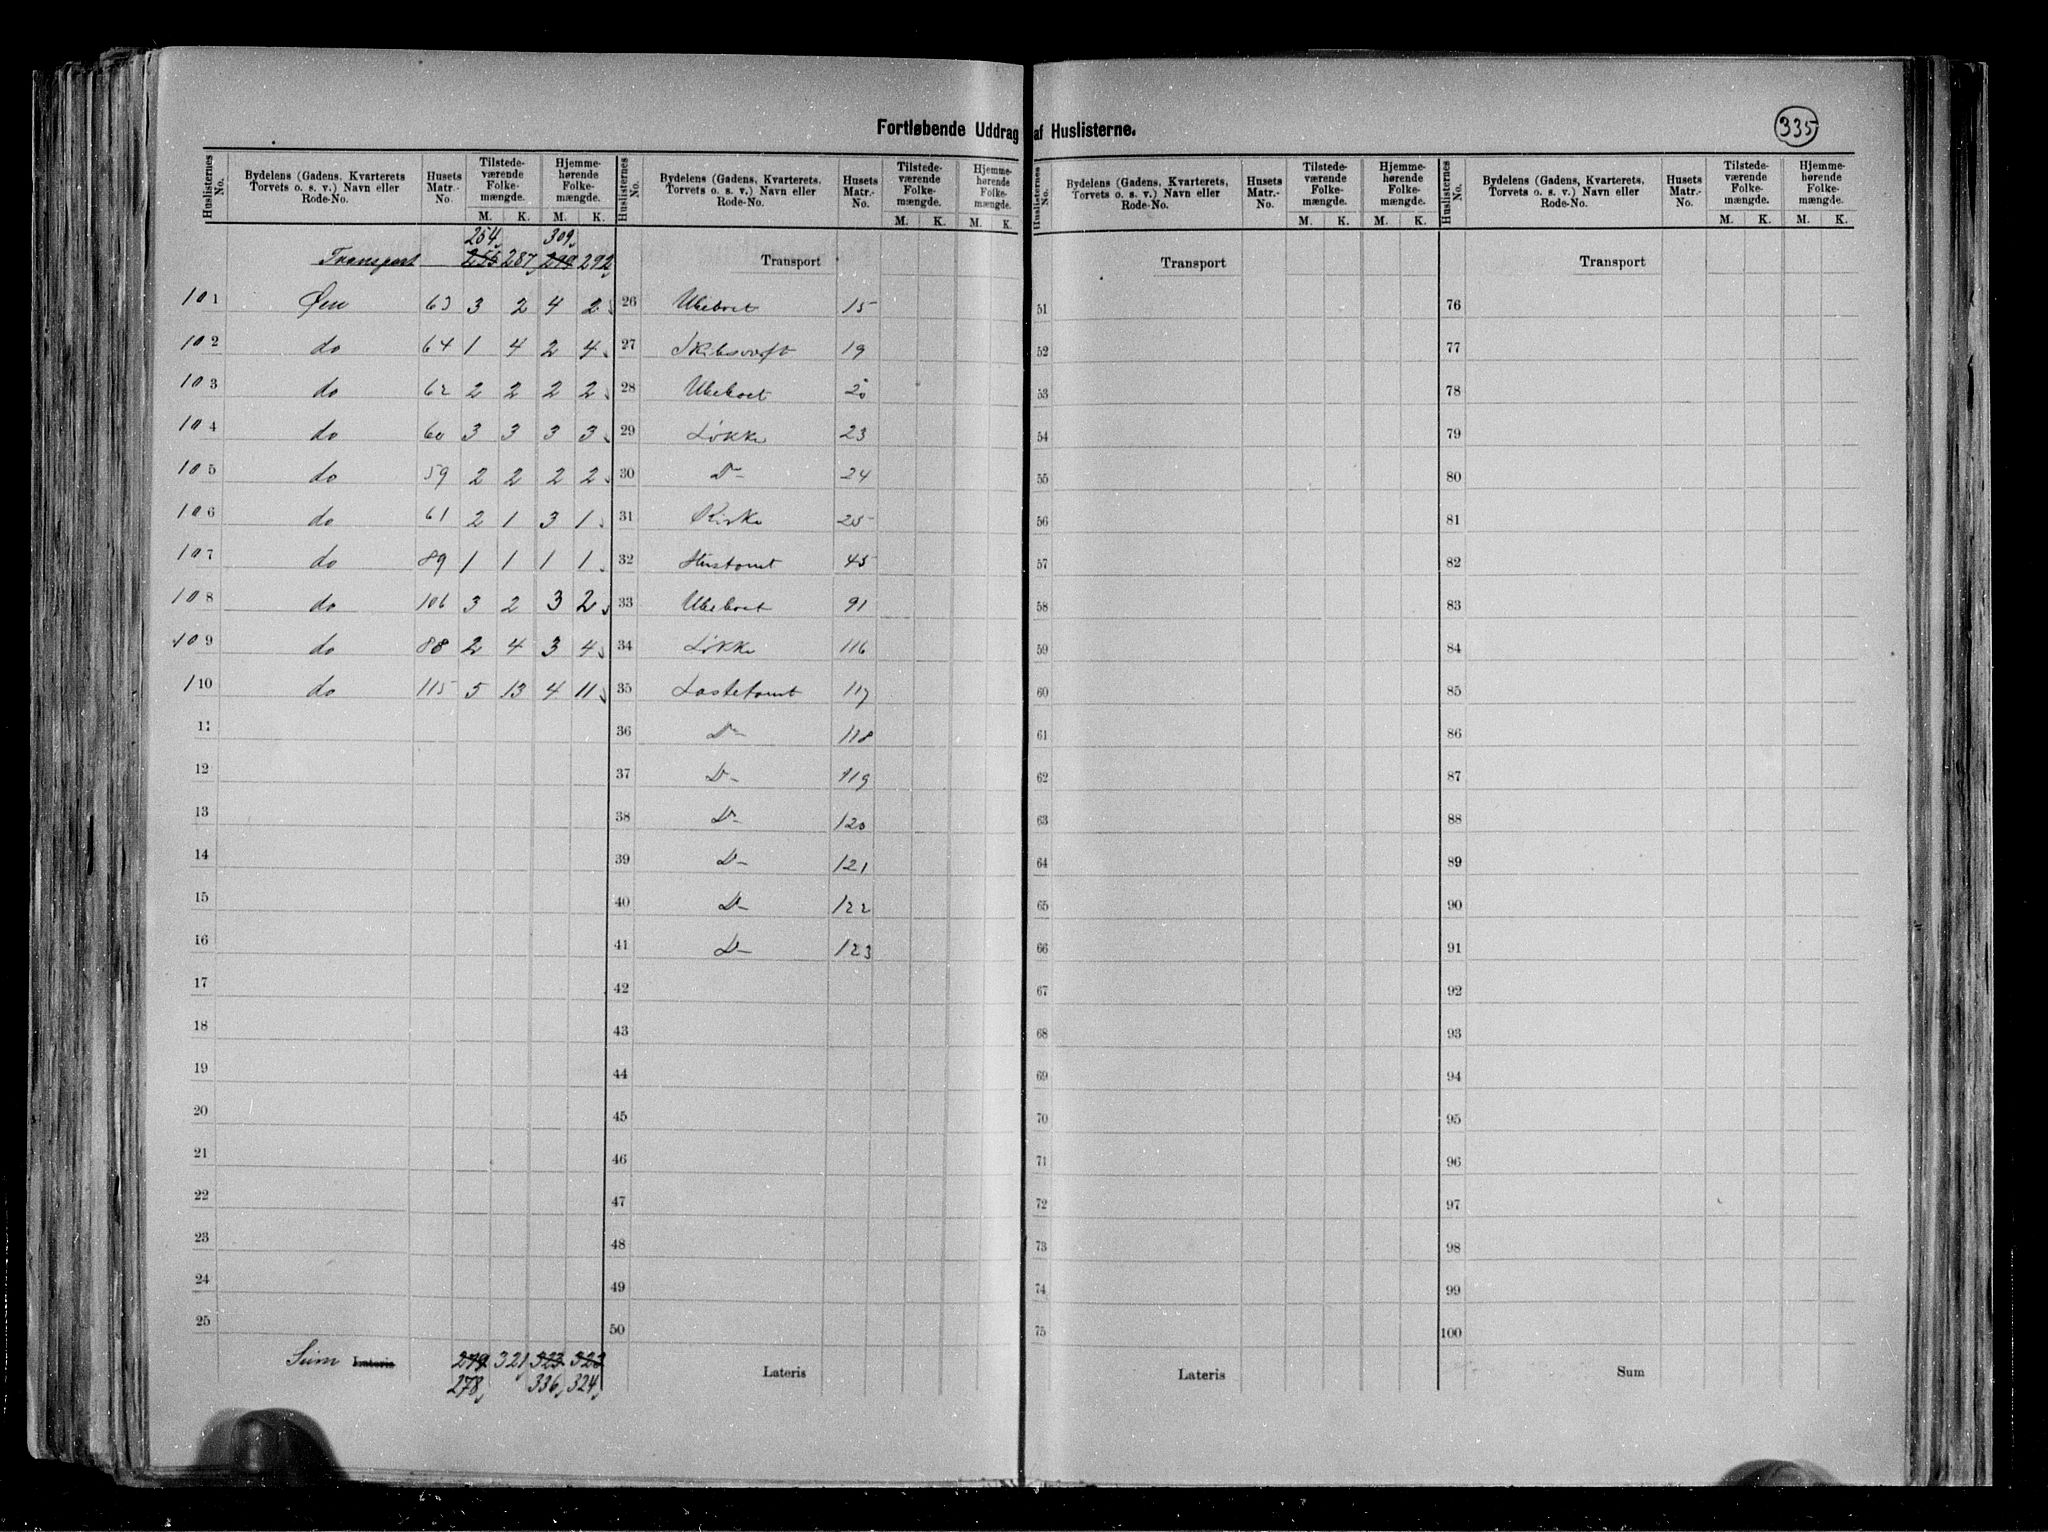 Fortløbende Uddrag af Huslisterne.
335
Huslisternes No. Bydelens (Gadens, Kvarterets, Torvets o. s. v.) Navn eller Rode-No. Husets Matr.-No. Tilstedeværende Folkemængde. M. K. Hjemmehørende Folkemængde. M. K.
254 309
Transport 255 287 299 292
101 Øen 63 3 2 4 2
102 do 64 1 4 2 4
103 do 62 2 2 2 2
104 do 60 3 3 3 3
105 do 59 2 2 2 2
106 do 61 2 1 3 1
107 do 89 1 1 1 1
108 do 106 3 2 3 2
109 do 88 2 4 3 4
110 do 115 5 13 4 11
11
12
13
14
15
16
17
18
19
20
21
22
23
24
25
Sum Lateris 279 321 323 323
278 336 324
Huslisternes No. Bydelens (Gadens, Kvarterets, Torvets o. s. v.) Navn eller Rode-No. Husets Matr.-No. Tilstedeværende Folkemængde. M. K. Hjemmehørende Folkemængde. M. K.
Transport
26 Ubeboet 15
27 Skibsværft 19
28 Ubeboet 20
29 Løkke 23
30 Do 24
31 Kirke 25
32 Hustomt 45
33 Ubeboet 91
34 Løkke 116
35 Lastetomt 117
36 Do 118
37 D- 119
38 D- 120
39 D- 121
40 D- 122
41 D- 123
42
43
44
45
46
47
48
49
50
Lateris
Huslisternes No. Bydelens (Gadens, Kvarterets, Torvets o. s. v.) Navn eller Rode-No. Husets Matr.-No. Tilstedeværende Folkemængde. M. K. Hjemmehørende Folkemængde. M. K.
Transport
51
52
53
54
55
56
57
58
59
60
61
62
63
64
65
66
67
68
69
70
71
72
73
74
75
Lateris
Huslisternes No. Bydelens (Gadens, Kvarterets, Torvets o. s. v.) Navn eller Rode-No. Husets Matr.-No. Tilstedeværende Folkemængde. M. K. Hjemmehørende Folkemængde. M. K.
Transport
76
77
78
79
80
81
82
83
84
85
86
87
88
89
90
91
92
93
94
95
96
97
98
99
100
Sum